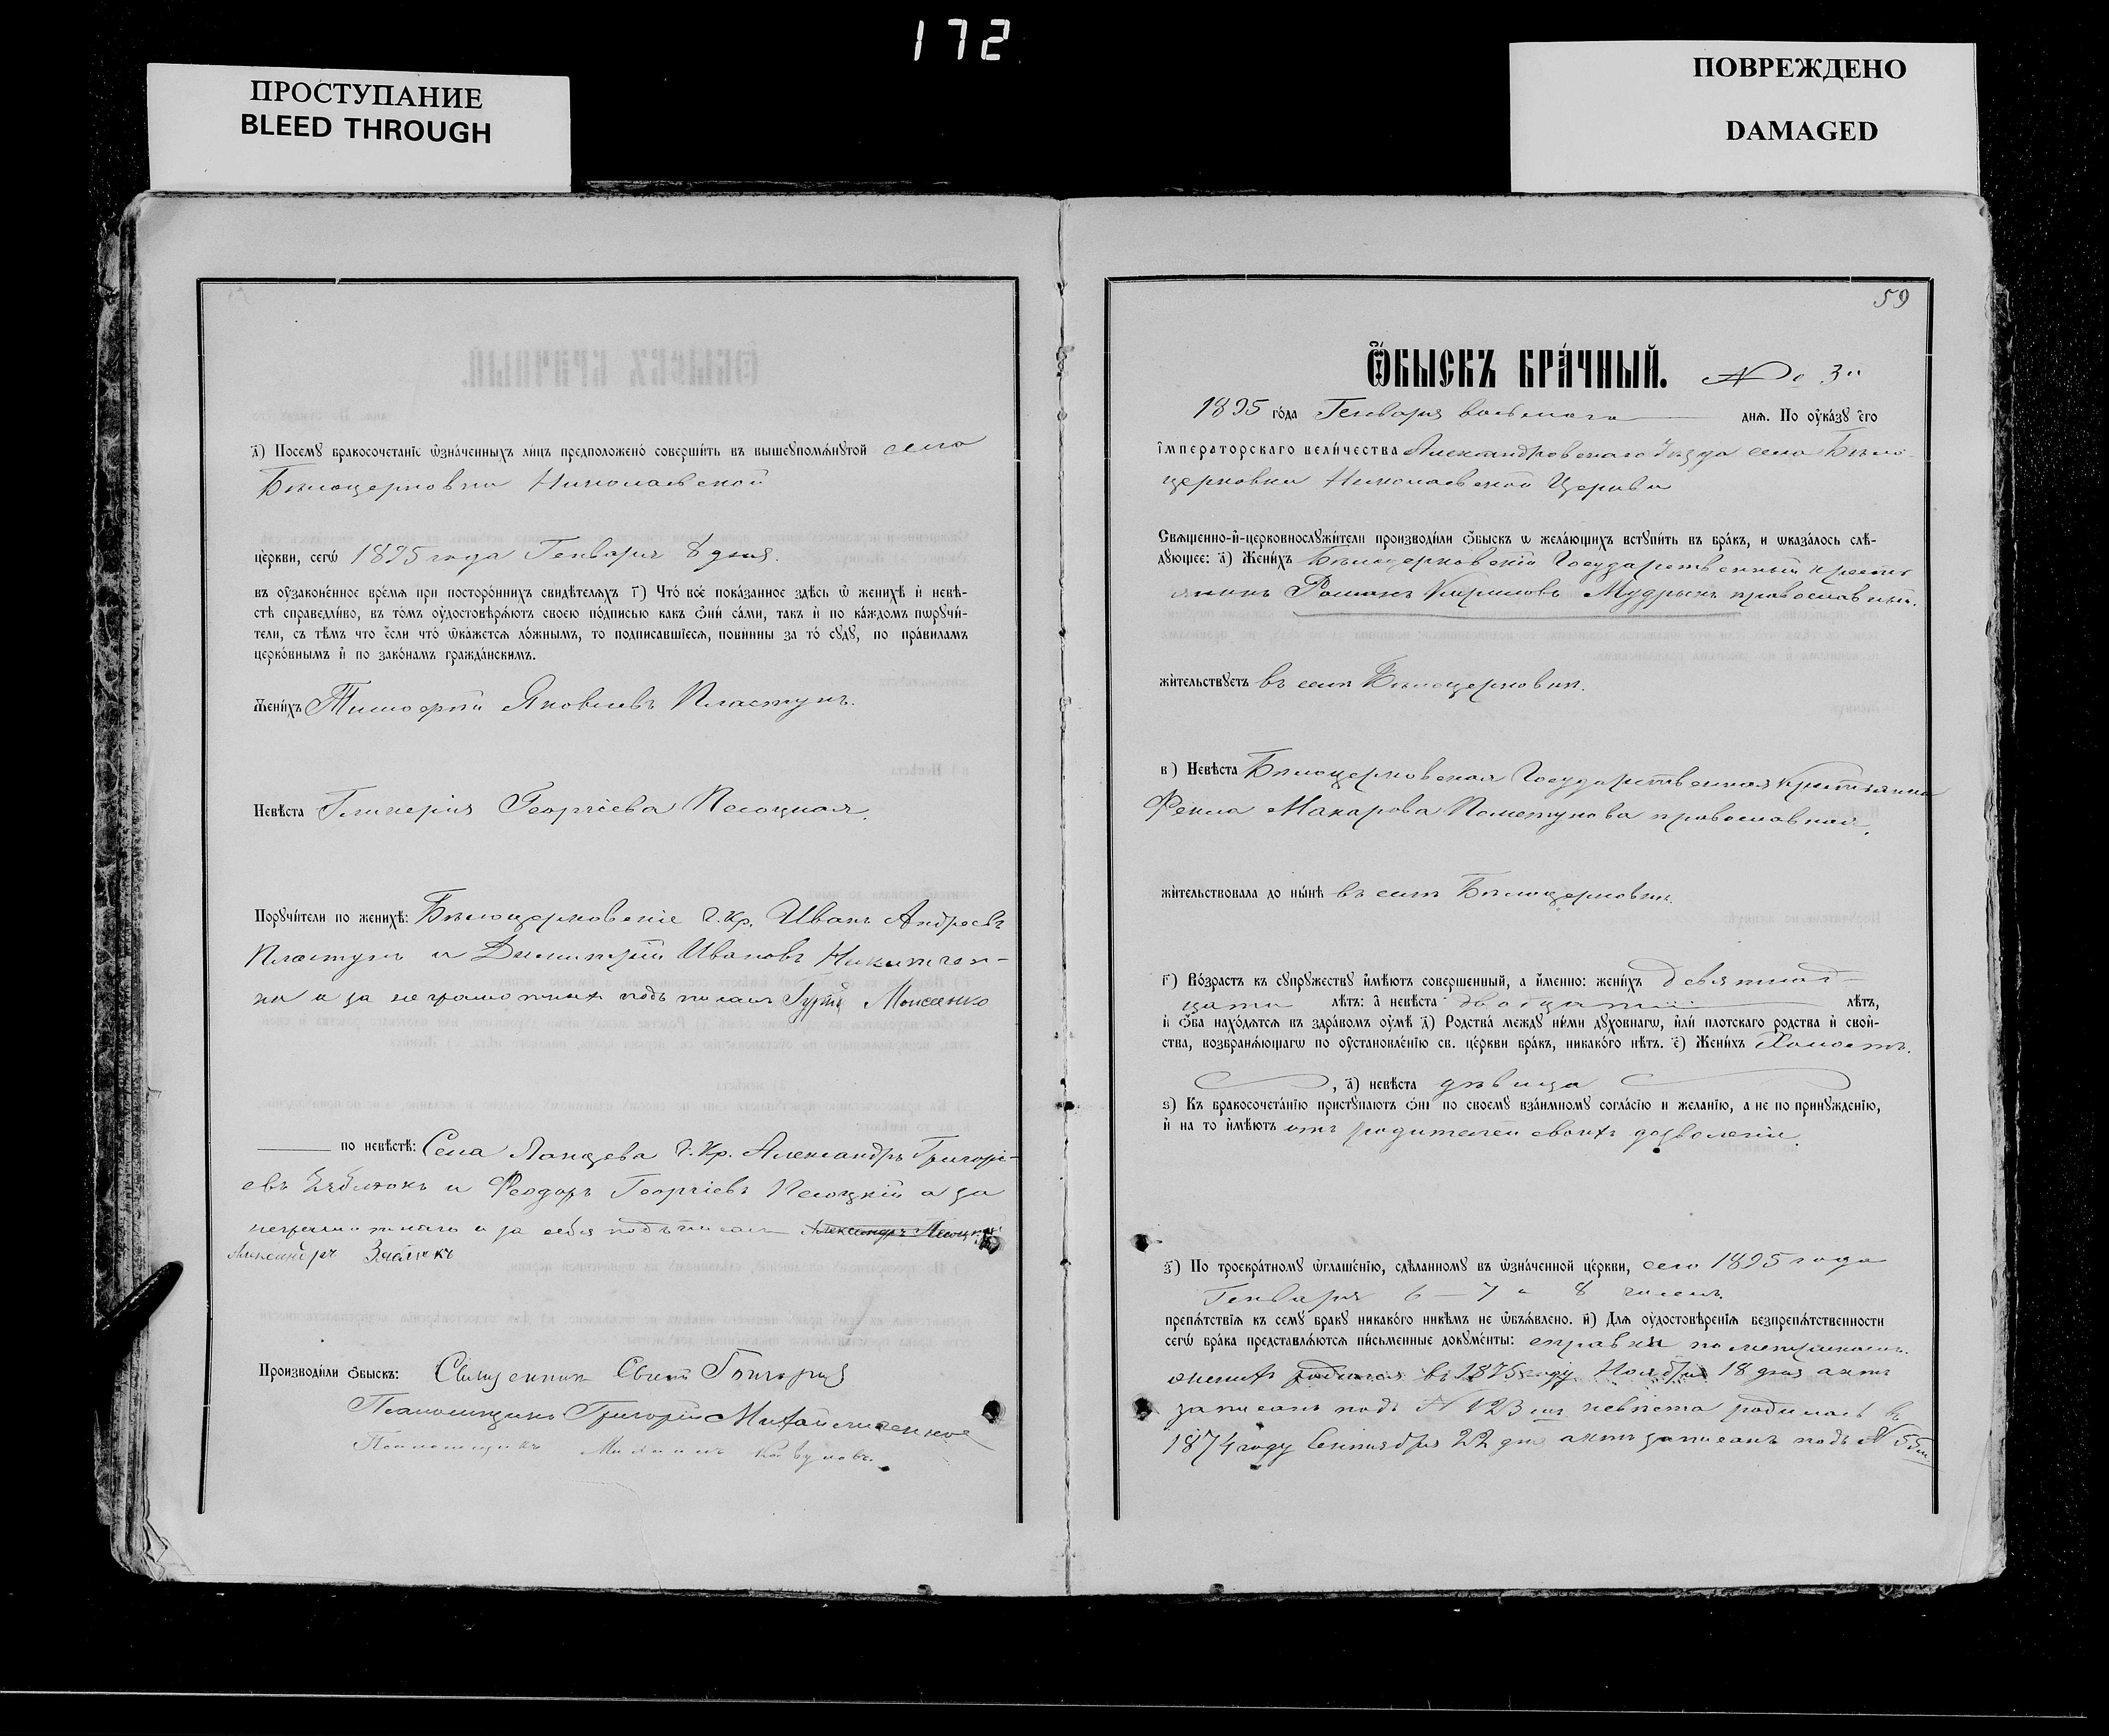 172
ПРОСТУПАНИЕ
BLEED THROUGH
ПОВРЕЖДЕНО
DAMAGED
д҃) Посемꙋ бракосочетанїе ѡзна́ченныхъ ли́цъ предположено̀ соверши́ть въ вышеꙋпомѧ́нꙋтой села
Бѣлоцерковки Николаевской
це́ркви, сегѡ̀ 1895 года Генваря 8 дня.
въ ᲂу҆зако́ненное вре́мѧ при посторо́ннихъ свидѣ́телѧхъ г҃) Что̀ всѐ пока́занное здѣ́сь ѡ҆ женихѣ̀ и҆ невѣ́-
стѣ справедли́во, въ то́мъ ᲂу҆достовѣрѧ́ютъ своею по́дписью какъ ѻ҆нѝ са́ми, такъ и҆ по ка́ждомъ порꙋчи́-
тели, съ тѣ́мъ что є҆́сли что̀ ѡ҆ка́жетсѧ ло́жнымъ, то подписавшїесѧ, пови́нны за то̀ сꙋдꙋ̀, по пра́виламъ
церко́внымъ и҆ по зако́намъ гражда́нскимъ.
Жени́хъ Тимофей Яковлевъ Пластунъ.
Невѣ́ста Гликерия Георгіева Песоцкая.
Порꙋчи́тели по женихѣ̀: Бѣлоцерковскіе г. кр. Иванъ Андреевъ
Пластунъ и Димитрій Ивановъ
и за неграмотныхъ подписалъ Моисеенко
по невѣ́стѣ: Села г. кр. Александръ Григорі-
евъ Зяблюкъ и Феодоръ Георгіевъ Песоцкій а за
неграмотнаго и за себя подписалъ Александръ
Александръ Зяблюкъ
Производи́ли ѻ҆́быскъ: Священникъ
Псаломщикъ Григорій
Псаломщикъ
59
Ѻ҆́БЫСКЪ БРА́ЧНЫЙ. № 3й
1895 го́да Генваря восьмого днѧ. По ᲂу҆ка́зꙋ є҆гѡ̀
и҆мпера́торскаго вели́чества Александровскаго уѣзда села Бѣло-
церковки Николаевской Церкви
Свѧще́нно-и҆-церковнослꙋжи́тели производи́ли ѻ҆́быскъ ѡ҆ жела́ющихъ встꙋпи́ть въ бра́къ, и ѡ҆каза́лось слѣ́-
дꙋющее: а҃) Жени́хъ Бѣлоцерковскій Государственный кресть-
янинъ Романъ Кириловъ Мудрыкъ православный.
жи́тельствꙋетъ въ селѣ Бѣлоцерковкѣ.
в҃) Невѣ́ста Бѣлоцерковская Государственная крестьянка
Фекла Макарова православная.
жи́тельствовала до ны́нѣ въ селѣ Бѣлоцерковкѣ.
г҃) Во́зрастъ къ сꙋпрꙋ́жествꙋ и҆мѣ́ютъ совершенный, а и҆́менно: жени́хъ девятнад-
цати лѣтъ: а҆ невѣ́ста двадцати лѣтъ,
и҆ ѻ҆́ба нахо́дѧтсѧ въ здра́вомъ ᲂу҆мѣ̀ д҃) Родства̀ междꙋ ни́ми дꙋхо́внагѡ, и҆лѝ пло́тскаго родства и҆ свой-
ства, возбранѧ́ющагѡ по ᲂу҆становле́нїю св. це́ркви бра́къ, никако́го нѣ́тъ. є҃) Жени́хъ Холостъ.
, а҃) невѣ́ста дѣвица
ѕ҃) Къ бракосочета́нїю пристꙋпа́ютъ ѻ҆нѝ по своемꙋ̀ взаи́мномꙋ согла́сїю и жела́нїю, а не по принꙋжде́нїю,
и҆ на то и҆мѣ́ютъ отъ родителей своихъ дозволеніе.
з҃) По троекра́тномꙋ ѡ҆глаше́нїю, сдѣ́ланномꙋ въ ѡ҆зна́ченной це́ркви, сего 1895 года
Генваря 6 – 7 и 8 чиселъ
препѧ́тствїѧ къ семꙋ̀ бра́кꙋ никако́го никѣ́мъ не ѡ҆бъѧ́влено. и҃) Длѧ ᲂу҆достовѣ́ренїѧ безпрепѧ́тственности
сегѡ̀ бра́ка представлѧ́ютсѧ пи́сьменные докꙋме́нты: справка по метрикамъ.
женихъ родился въ 1875 году Ноября 18 дня актъ
записанъ подъ № 123мъ невѣста родилась въ
1874 году Сентября 22 дня актъ записанъ подъ №